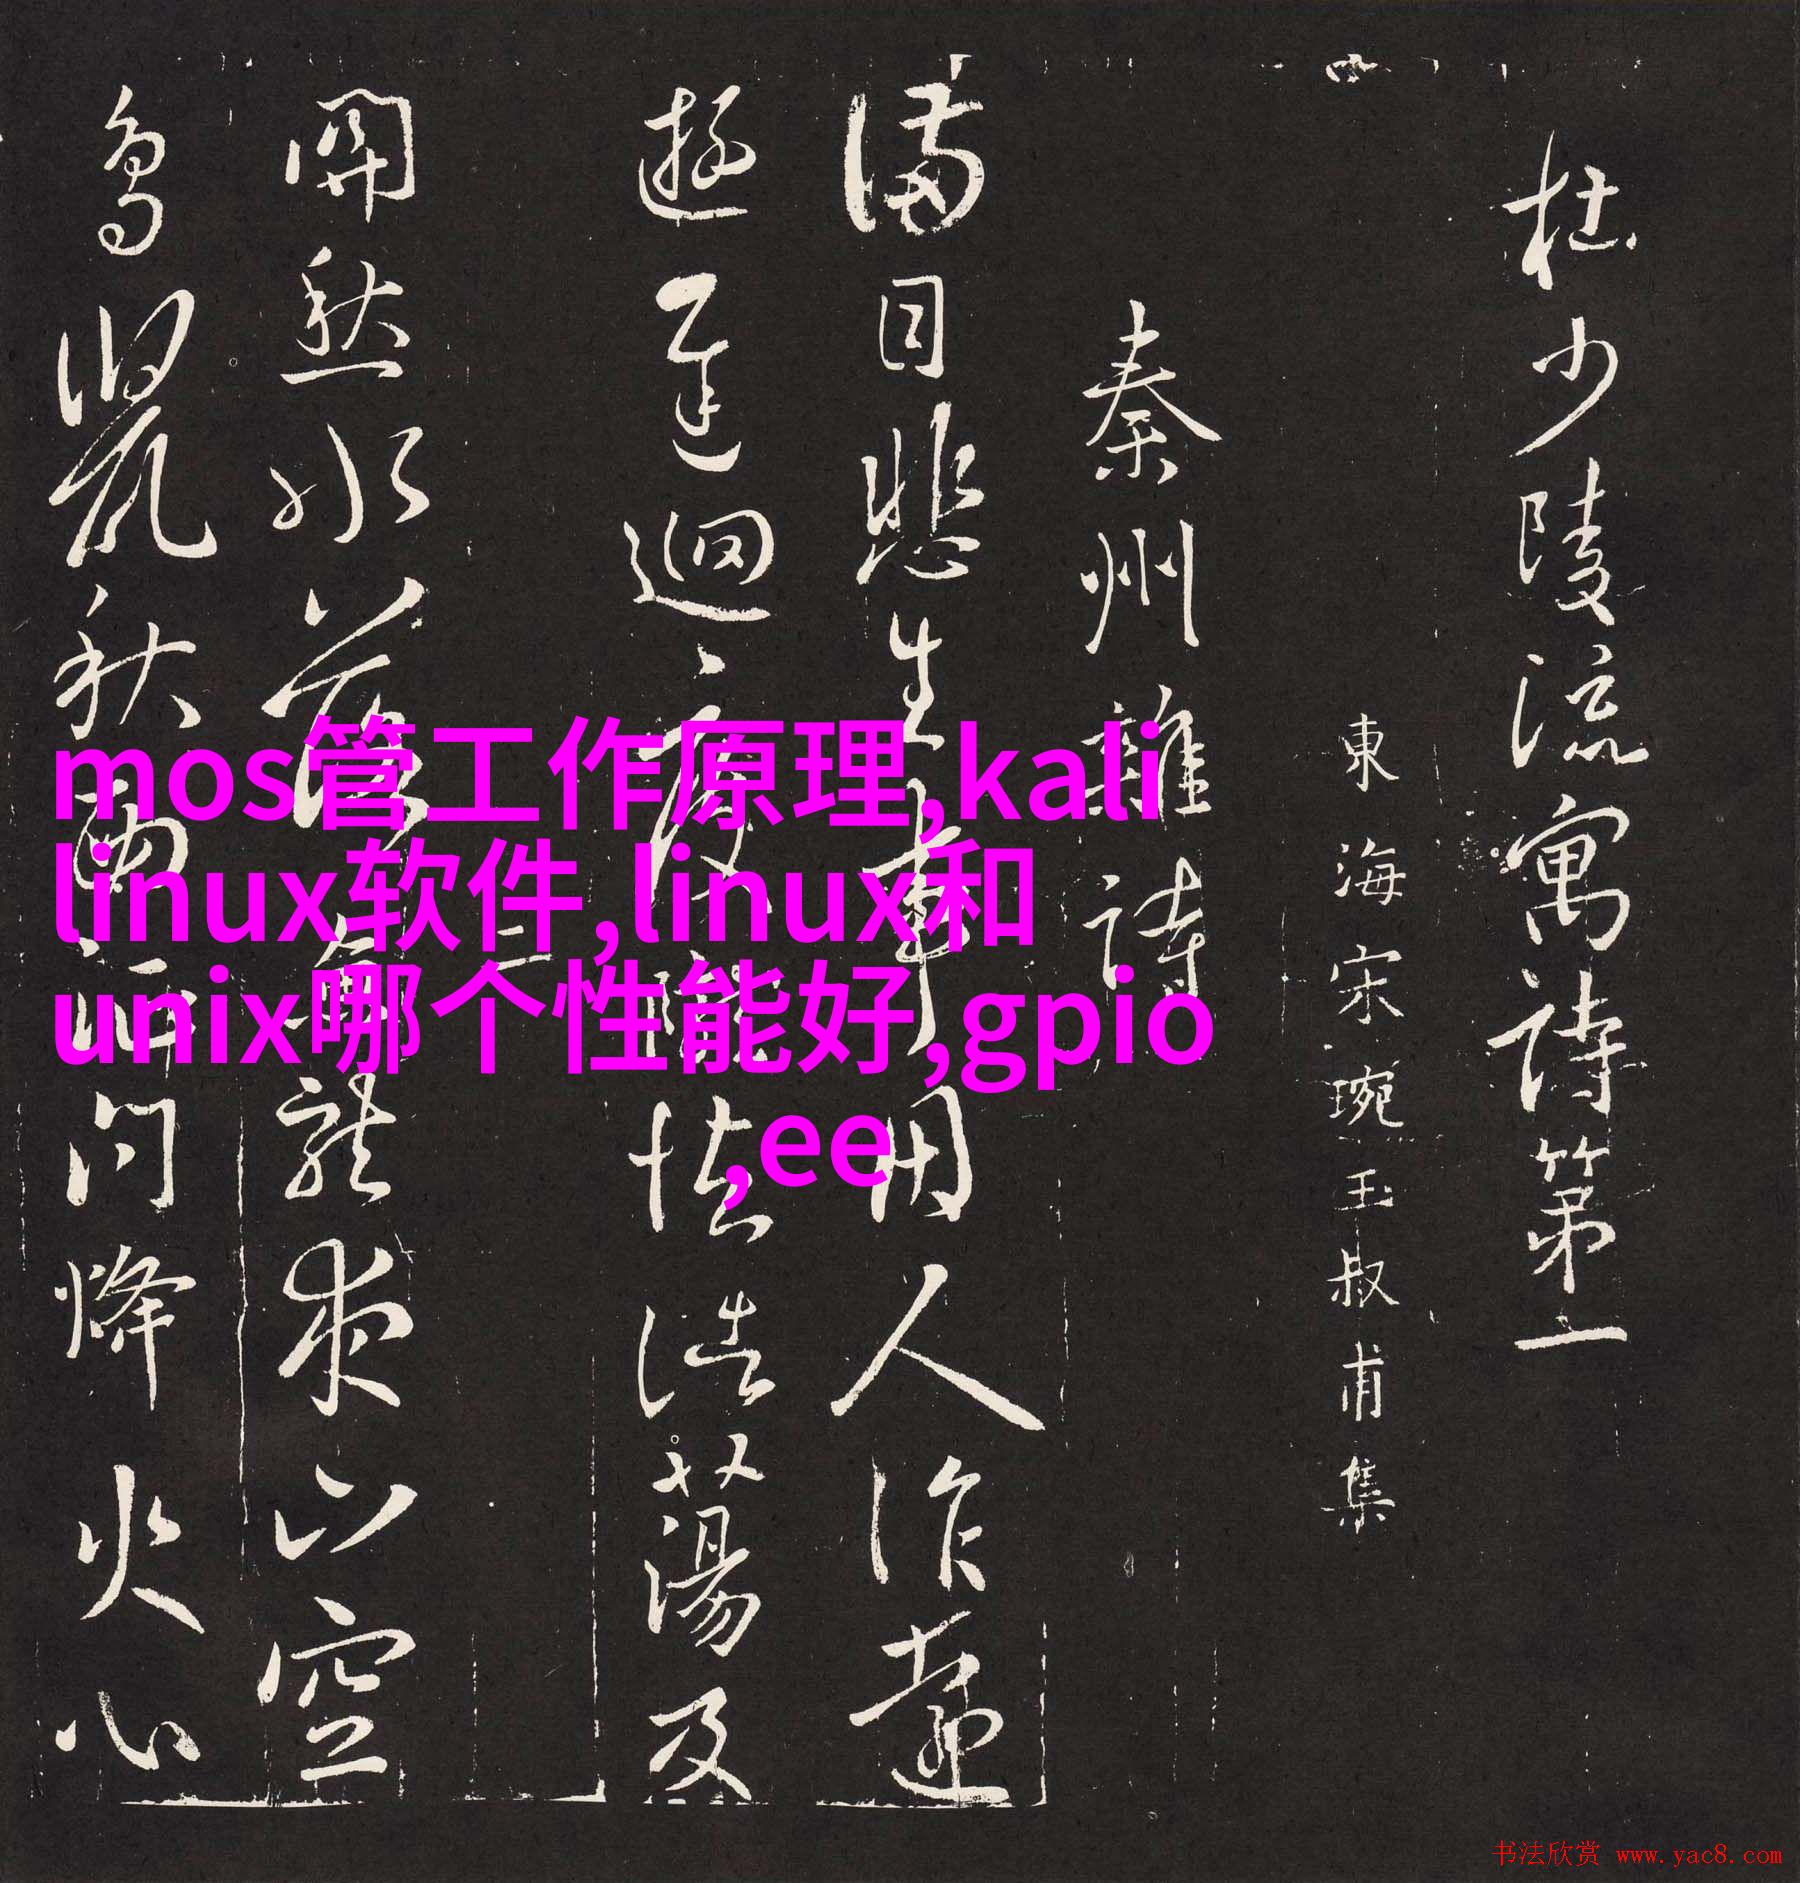 杜少陵流寓詩第一
東海宋琬玉叔甫集
秦州雜詩
滿目悲生事因人作遠
遊遲迴度隴怯浩蕩及
關愁水落魚龍夜山空
鳥鼠秋西征問烽火心
mos管工作原理,kali
linux软件,linux和
unix哪个性能好,gpio
,ee
书法欣赏 www.yac8.com